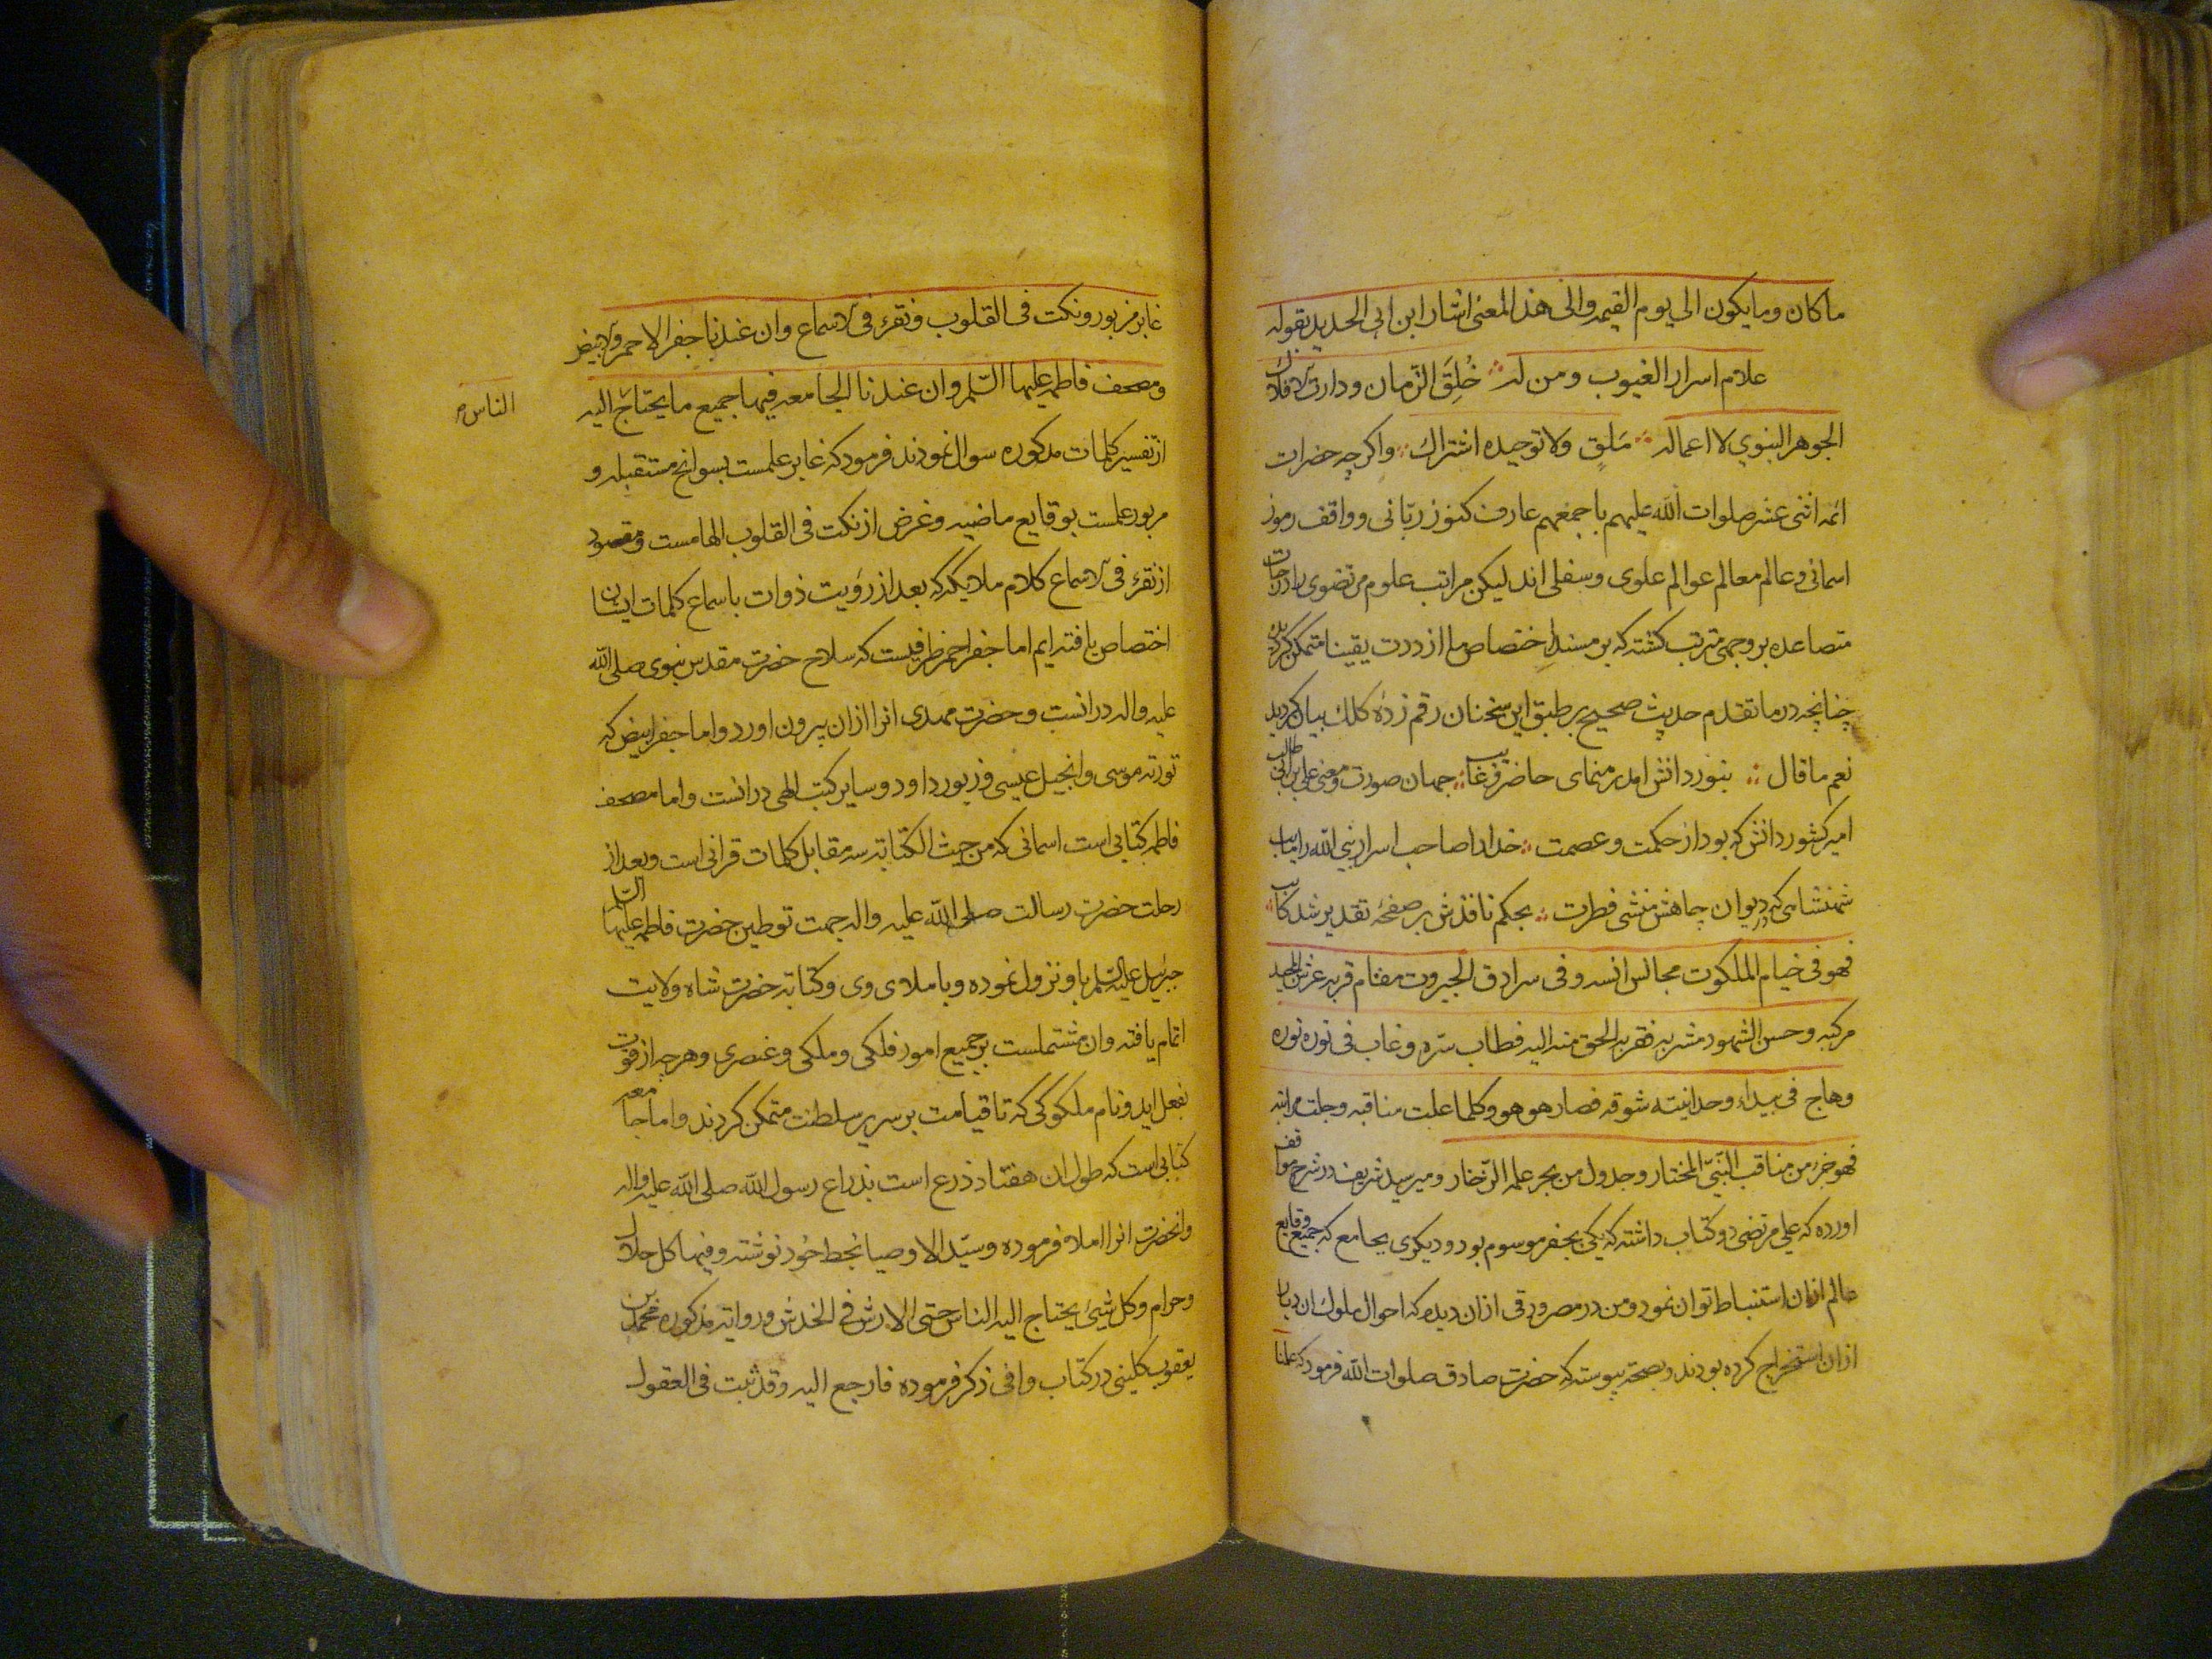 ماكان ومايكون الى يوم القيمه والى هذا المعنى اشار ابن ابى الحديد بقوله
علام اسرار الغيوب ومن له خُلِقَ الزّمان ودارت الافلاك
الجوهر النبوي لا اعماله مَلَقٍ ولا توحيده اشتراك واكرچه حضرات
ائمه اثنى عشر صلوات الله عليهم باجمعهم عارف كنوز ربّانى وواقف رموز
اسمانى وعالم معالم عوالم علوى وسفلى اند ليكن مراتب علوم مرتضوى بادراجات
متصاعده بروجهى مترتب كشته كه بر مسند اختصاص ما ازددت يقينا متمكن كرديده
چنانچه در ما تقدم حديث صحيح بر طبق اين سخنان رقم زدۀ كلك بيان كرديد
نعم ما قال بنور دانش امد رهنماى حاضر وغايب جهان صورت ومعنى على بن ابى طالب
امير كشور دانش كه بود از حكمت وعصمت خدا را صاحب اسرار نبى الله را نايب
شهنشاهى كه در ديوان جاهش منشى فطرت بحكم نافذش بر صفحۀ تقدير شد كاتب
فهو فى خيام الملكوت مجالس انسه وفى سرادق الجبروت مقام قربه عرش المجد
مركبه وحسن الشهود مشربه فقربه الحق منه اليه فطاب سرّه وغاب فى نوره نوره
وهاج فى بيداء وحدانيته شوقه فصار هو هو وكلما علت مناقبه وجلت مراتبه
فهو جزء من مناقب النّبيّ المختار وجدول من بحر علمه الزّخار ومير سيد شريف در شرح مواقف
اورده كه على مرتضى دو كتاب داشته كه يكى بجفر موسوم بود وديكرى بجامع كه جميع وقايع
عالم ازان استنباط توان نمود ومن در مصر ورقى ازان ديدم كه احوال ملوك ان ديار
ازان استخراج كرده بودند وبصحت پيوسته كه حضرت صادق صلوات الله فرمود كه علمنا
غابر مزبور ونكت فى القلوب ونقر فى الاسماع وان عندنا جفر الاحمر والابيض
ومصحف فاطمه عليها السّلم وان عندنا الجامعه فيها جميع ما يحتاج اليه
الناس
از تفسير كلمات مذكوره سوال نمودند فرمود كه غابر علمست بسوانح مستقبله و
مزبور علمست بوقايع ماضيه وغرض از نكت فى القلوب الهامست ومقصود
از نقر فى الاسماع كلام ملايكه كه بعد از رؤيت ذوات باسماع كلمات ايشان
اختصاص يافته ايم اما جفر احمر ظرفيست كه سلاح حضرت مقدس نبوى صلى الله
عليه واله درانست وحضرت مهدى انرا ازان بيرون اورد واما جفر ابيض كه
تورته موسى وانجيل عيسى وزبور داود وساير كتب الهى درانست واما مصحف
فاطمه كتابى است اسمانى كه من حيث الكتابته سه مقابل كلمات قرانى است وبعد از
رحلت حضرت رسالت صلى الله عليه واله جهت توطين حضرت فاطمه عليها السّلم
جبرئيل عليه السّلم باو نزول نموده وباملاى وى وكتابه حضرت شاه ولايت
اتمام يافته وان مشتملست بر جميع امور فلكى وملكى وعنصرى وهرچه از قوت
بفعل ايد ونام ملكوكى كه تا قيامت بر سرير سلطنت متمكن كردند واما جامعه
كتابى است كه طول ان هفتاد ذرع است بذراع رسول الله صلى الله عليه واله
وانحضرت انرا املاء فرموده وسيّد الاوصيا بخط خود نوشته وفيها كل حلال
وحرام وكل شيئ يحتاج اليه الناس حتى الارش فى الخدش وروايته مذكوره محمد بن
يعقوب كلينى در كتاب وافى ذكر فرموده فارجع اليه وقد ثبت فى العقول